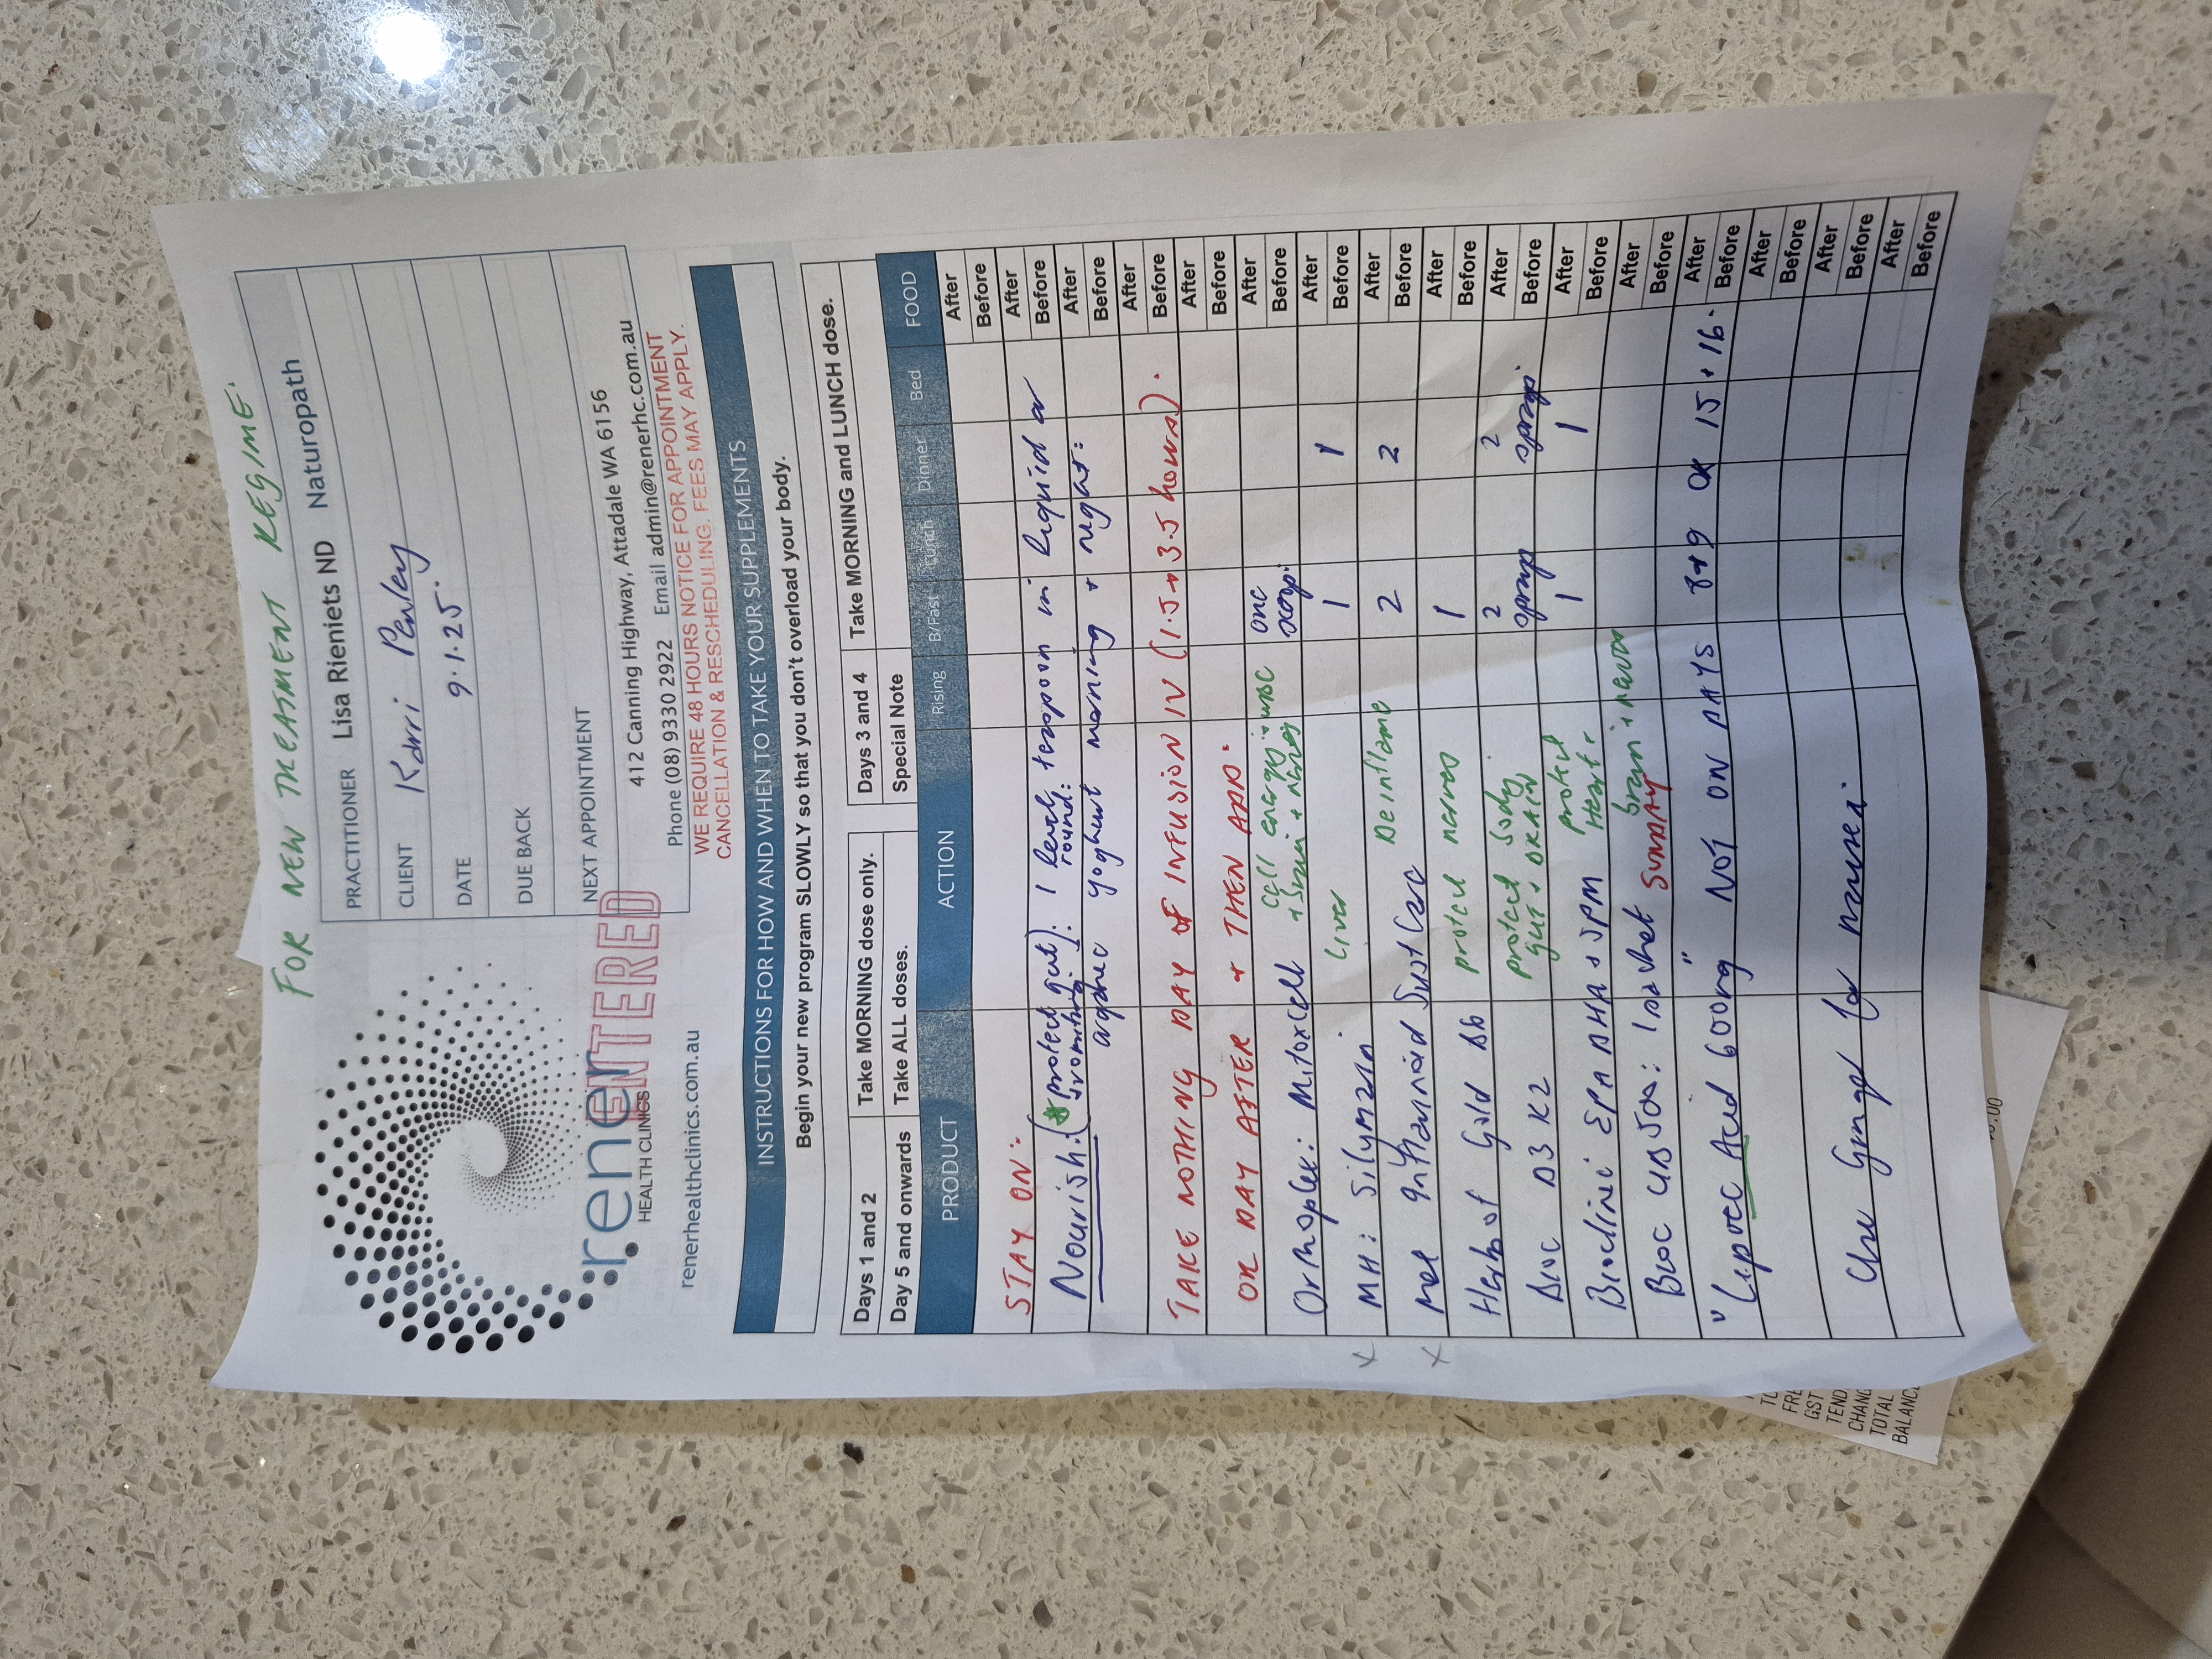 FOR NEW TREATMENT REGIME.
PRACTITIONER Lisa Rieniets ND Naturopath
CLIENT Karri Penley
DATE 9.1.25.
DUE BACK
NEXT APPOINTMENT
rener
HEALTH CLINICS
ENTERED
renerhealthclinics.com.au
412 Canning Highway, Attadale WA 6156
Phone (08) 9330 2922 Email admin@renerhc.com.au
WE REQUIRE 48 HOURS NOTICE FOR APPOINTMENT
CANCELLATION & RESCHEDULING. FEES MAY APPLY.
INSTRUCTIONS FOR HOW AND WHEN TO TAKE YOUR SUPPLEMENTS
Begin your new program SLOWLY so that you don't overload your body.
Days 1 and 2 Take MORNING dose only. Days 3 and 4 Take MORNING and LUNCH dose.
Day 5 and onwards Take ALL doses. Special Note
PRODUCT ACTION Rising B/Fast Lunch Dinner Bed FOOD
After
Before
STAY ON: After
Before
Nourish: (protect gut + vomiting): 1 level round: teaspoon in liquid or After
organic yoghurt morning + night: Before
After
Before
TAKE NOTHING DAY OF INFUSION IV (1.5 → 3.5 hours). After
Before
OR DAY AFTER + THEN ADD. After
Before
Orthoplex: Mitoxcell cell energy + WBC + brain + nerves one scoop. After
Before
MH: Silymarin Liver 1 1 After
Before
Met Inflammoid SustCare Deinflame 2 2 After
Before
Herbs of Gold B6 protect nerves 1 After
Before
Bioc D3 K2 protect body gut + BRAIN 2 sprays 2 sprays After
Before
Bioclinic EPA DHA + SPM protect Heart + brain + nerves 1 1 After
Before
Bioc UB500: 1 sachet SUNDAY After
Before
"Lipoic Acid 600mg" NOT ON DAYS 8+9 OR 15+16. After
Before
After
Before
Use Ginger for nausea. After
Before
TEND
CHANG
TOTAL
BALANC
GST
FRE